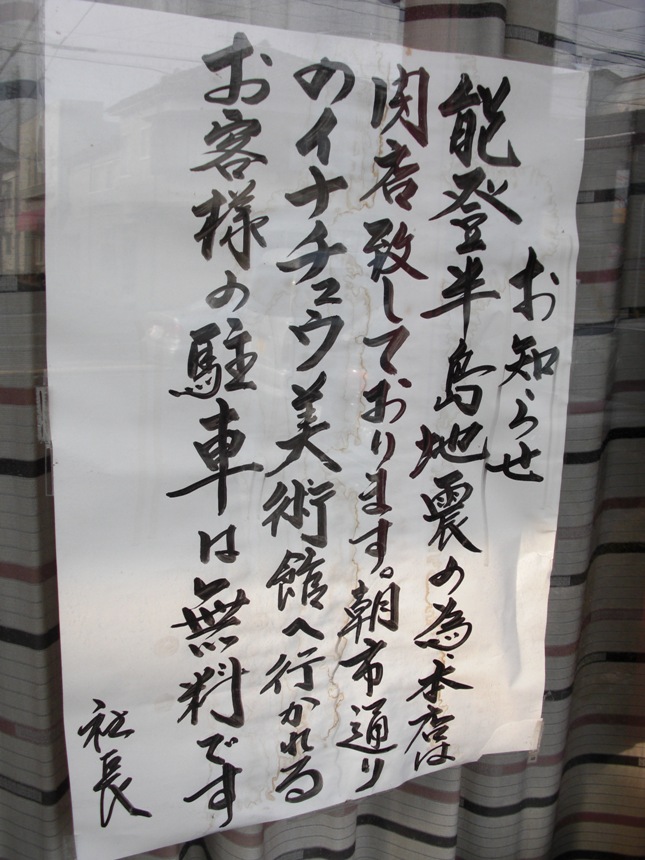 お知らせ
能登半島地震の為本店は
閉店致しております。朝市通り
のイナチュウ美術館へ行かれる
お客様の駐車は無料です
社長